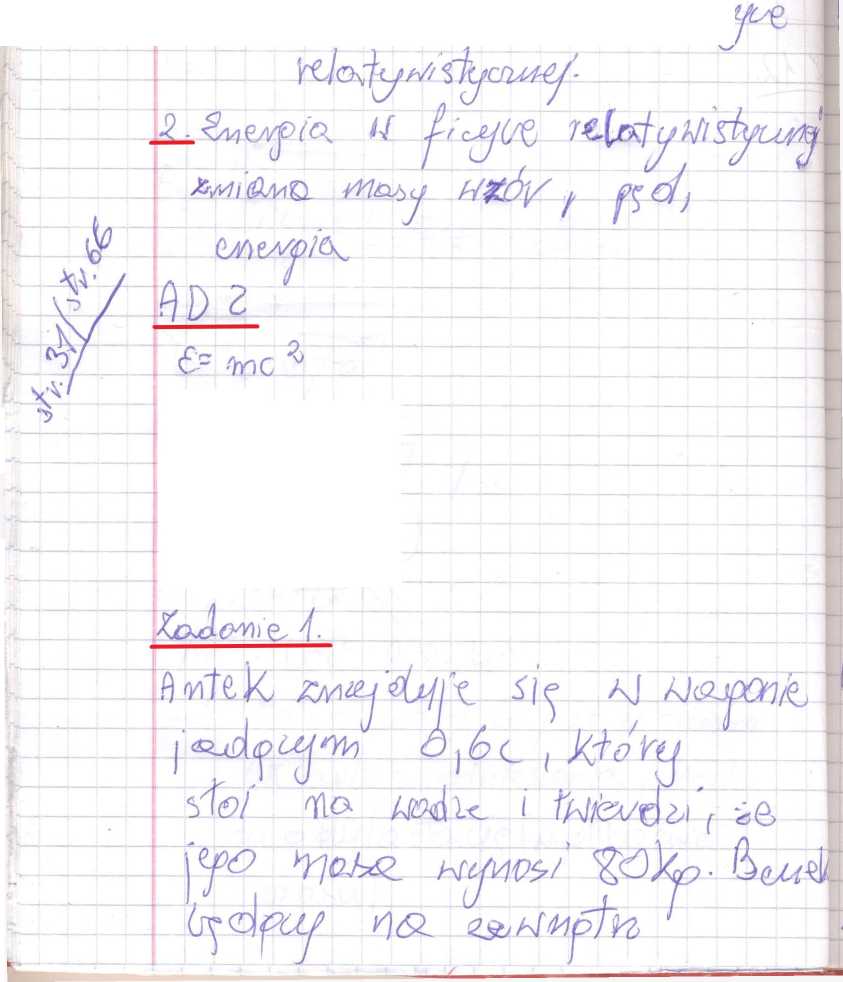 yce
relatywistycznej.
2. Energia w fizyce relatywistycznej
zmiana masy wzór, pęd,
energia
str. 31/str. 66
AD 2
E = mc²
Zadanie 1.
Antek znajduje się w wagonie
jadącym 0,6c, który
stoi na wadze i twierdzi, że
jego masa wynosi 80kg. Benek
będący na zewnątrz